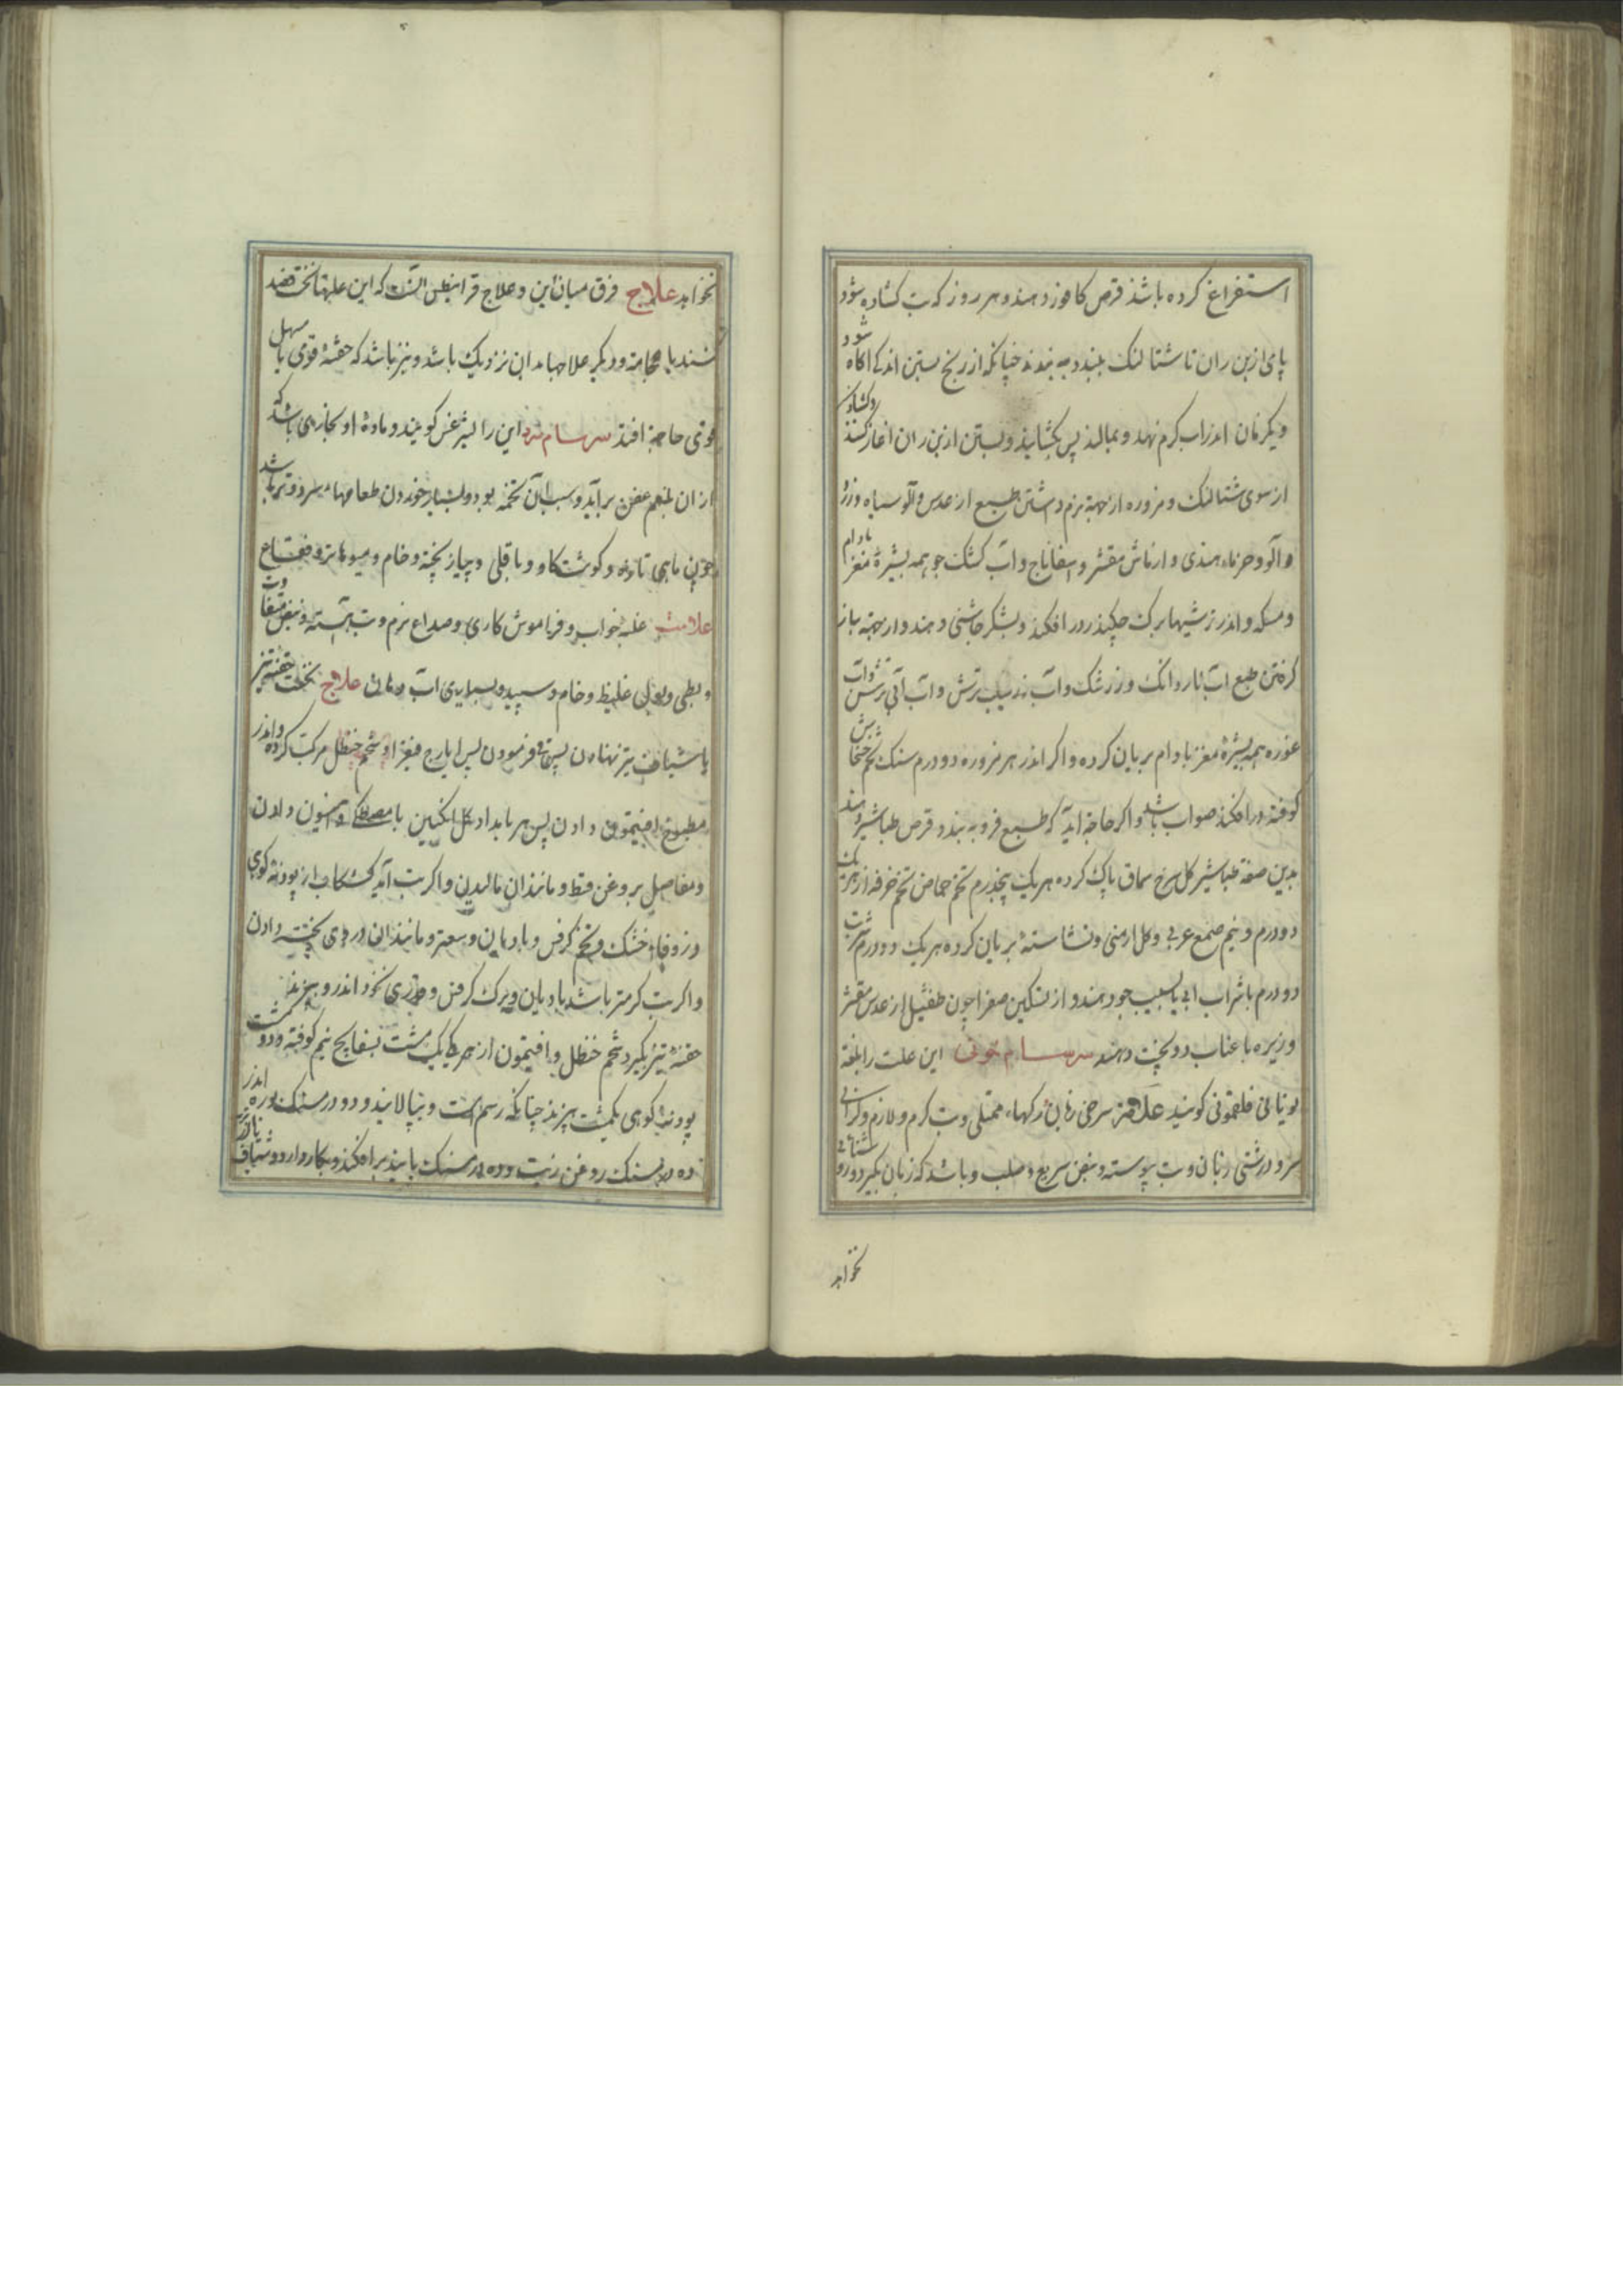 استفراغ کرده باشذ قرص کافور دهند و هر روز که تب کشاده شود
پای از بن ران تا شتالنک ببندد به بندند چنانکه از رنج بستن اندکی اکاه شود
و یکزمان اندر اب کرم نهد و بمالند پس بکشایند و بستن از بن ران اغاز کنند و کشادن
از سوی شتالنک و مزوره از جهة نرم داشتن طبیع از عدس و الو سیاه
و آلو و خرماء هندی و از ماش مقشر و اسفاناج و آب کشک جو همه بشیرهٔ مغز بادام
و مسکه و اندر ترشیها برک چکندر در افکند و بشکر چاشنی دهند و از جهة باز
کرفتن طبع اب ناردانک و زرشک و آب سیب ترش و اب آبی ترش و آب
غوره همه بشیرهٔ مغز بادام بریان کرده و اکر اندر هر مزوره دو درم سنک تخم خشخاش
کوفته در افکند صواب باشد و اکر حاجة اید که طبیع فرو به بندد قرص طباشیر دهند
بدین صفة طباشیر کل سرخ سماق پاک کرده هر یک پنجدرم تخم حماض تخم خرفه از هر یک
دو درم و نیم صمغ عربی و کل ارمنی و نشاستهٔ بریان کرده هر یک دو درم شربت
دو درم با شراب ابی یا سیب دهند و از تسکین صفرا چون طفشیل از عدس مقشر
و زیره با عناب دو پخت دهند سرسام خونی این علت را بلغة
یونانی فلغمونی کویند علامة سرخی زبان رکهاء ممتلی و تب کرم و لازم و کرانی
سر و درشتی زبان و تب پیوسته و نبض سریع و صلب و باشد که زبان بکیرد و روشنائی
نخواهد
نخواهد علاج فرق میان این و علاج قرانیطس انست که این علتها نخست فصد
کنند یا حجامة و دیکر علاجها بدان نزدیک باشد و نیز باشد که حقنهٔ قوی یا مسهل
قوی حاجة افتد سرسام سرد این را لیثرغس کویند و مادهٔ او بخارهای باشد که
از ان بلغم عفن برآید و سبب آن تخمه بود و بسیار خوردن طعامهاء سرد و تر باشد
چون ماهی تازه و کوشت کاو و باقلی و پیاز پخته و خام و میوهاء تر و فقاع
علامت غلبهٔ خواب و فراموش کاری و صداع نرم و تب آهسته و نبض متفاوت
و بطی و بول غلیظ و خام و سپید و بسیاری آب دهان علاج نخست حقنه تیز
یا شیاف تیز نهادن پس قی فرمودن پس ایارج فیقرا و شحم حنظل مرکب کرده و اندر
مطبوخ افیتمون دادن پس هر بامداد کل انکبین با مصطکی و انیسون دادن
و مفاصل بروغن قسط و مانند ان مالیدن و اکر تب آید کشکاب از پودنه کوهی
و زوفاء خشک و تخم کرفس و بادیان و سعتر و مانند ان در وی پخته دادن
و اکر تب کرمتر باشد بادیان و برک کرفس و چیزی نخود اندر و بپزند
حقنهٔ تیز بکیرد شحم حنظل و افیتمون از هر یکی یک مشت بسفایج نیم کوفته و دو مشت
پودنهٔ کوهی یکمشت بپزند چنانکه رسم است و بپالایند و دو درمسنک بوره اندر
ده درمسنک روغن زیت و ده درمسنک پانیذ برافکند و بکار دارد و شیاف